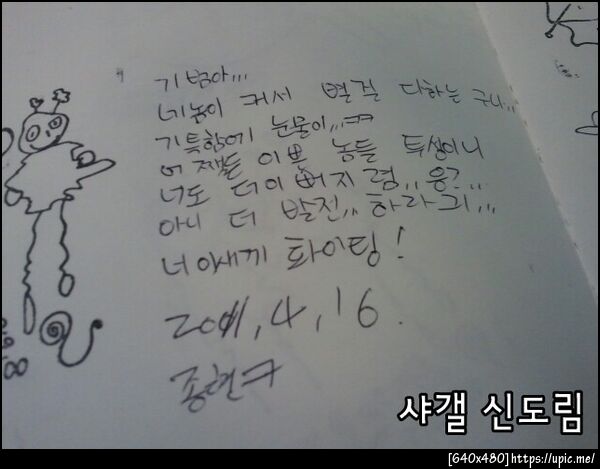 기범아...
네놈이 커서 별걸 다하는구나...
기특함에 눈물이...ㅋㅋ
어쨌든 이쁜 놈들 투성이니
너도 더 이뻐지렴,, 응?...
아니 더 발전,, 하라긔...
너 이새끼 화이팅!
2011, 4, 16.
종현ㅋ
샤갤 신도림
[640x480]https://upic.me/